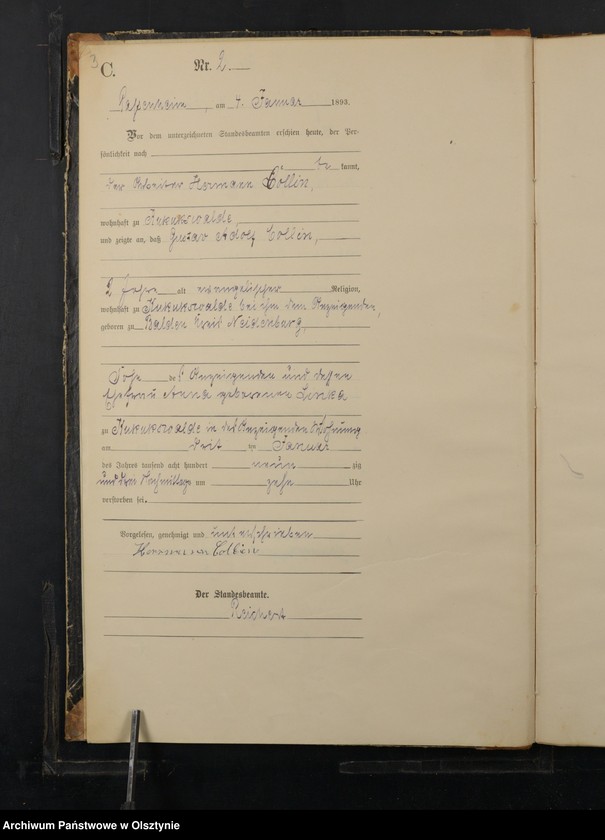 3
C.
Nr. 2.
Passenheim, am 4. Januar 1893.
Vor dem unterzeichneten Standesbeamten erschien heute, der Per-
sönlichkeit nach
be kannt,
der Arbeiter Hermann Collin,
wohnhaft zu Kukukswalde,
und zeigte an, daß Gustav Adolf Collin,
2 Jahre alt evangelischer Religion,
wohnhaft zu Kukukswalde bei ihm dem Anzeigenden,
geboren zu Balden Kreis Neidenburg,
Sohn des Anzeigenden und dessen
Ehefrau Anna geborenen Linka
zu Kukukswalde in des Anzeigenden Wohnung
am drit ten Januar
des Jahres tausend acht hundert neun zig
und drei Vormittags um zehn Uhr
verstorben sei.
Vorgelesen, genehmigt und unterschrieben
Hermann Collin
Der Standesbeamte.
Reichert
Archiwum Państwowe w Olsztynie